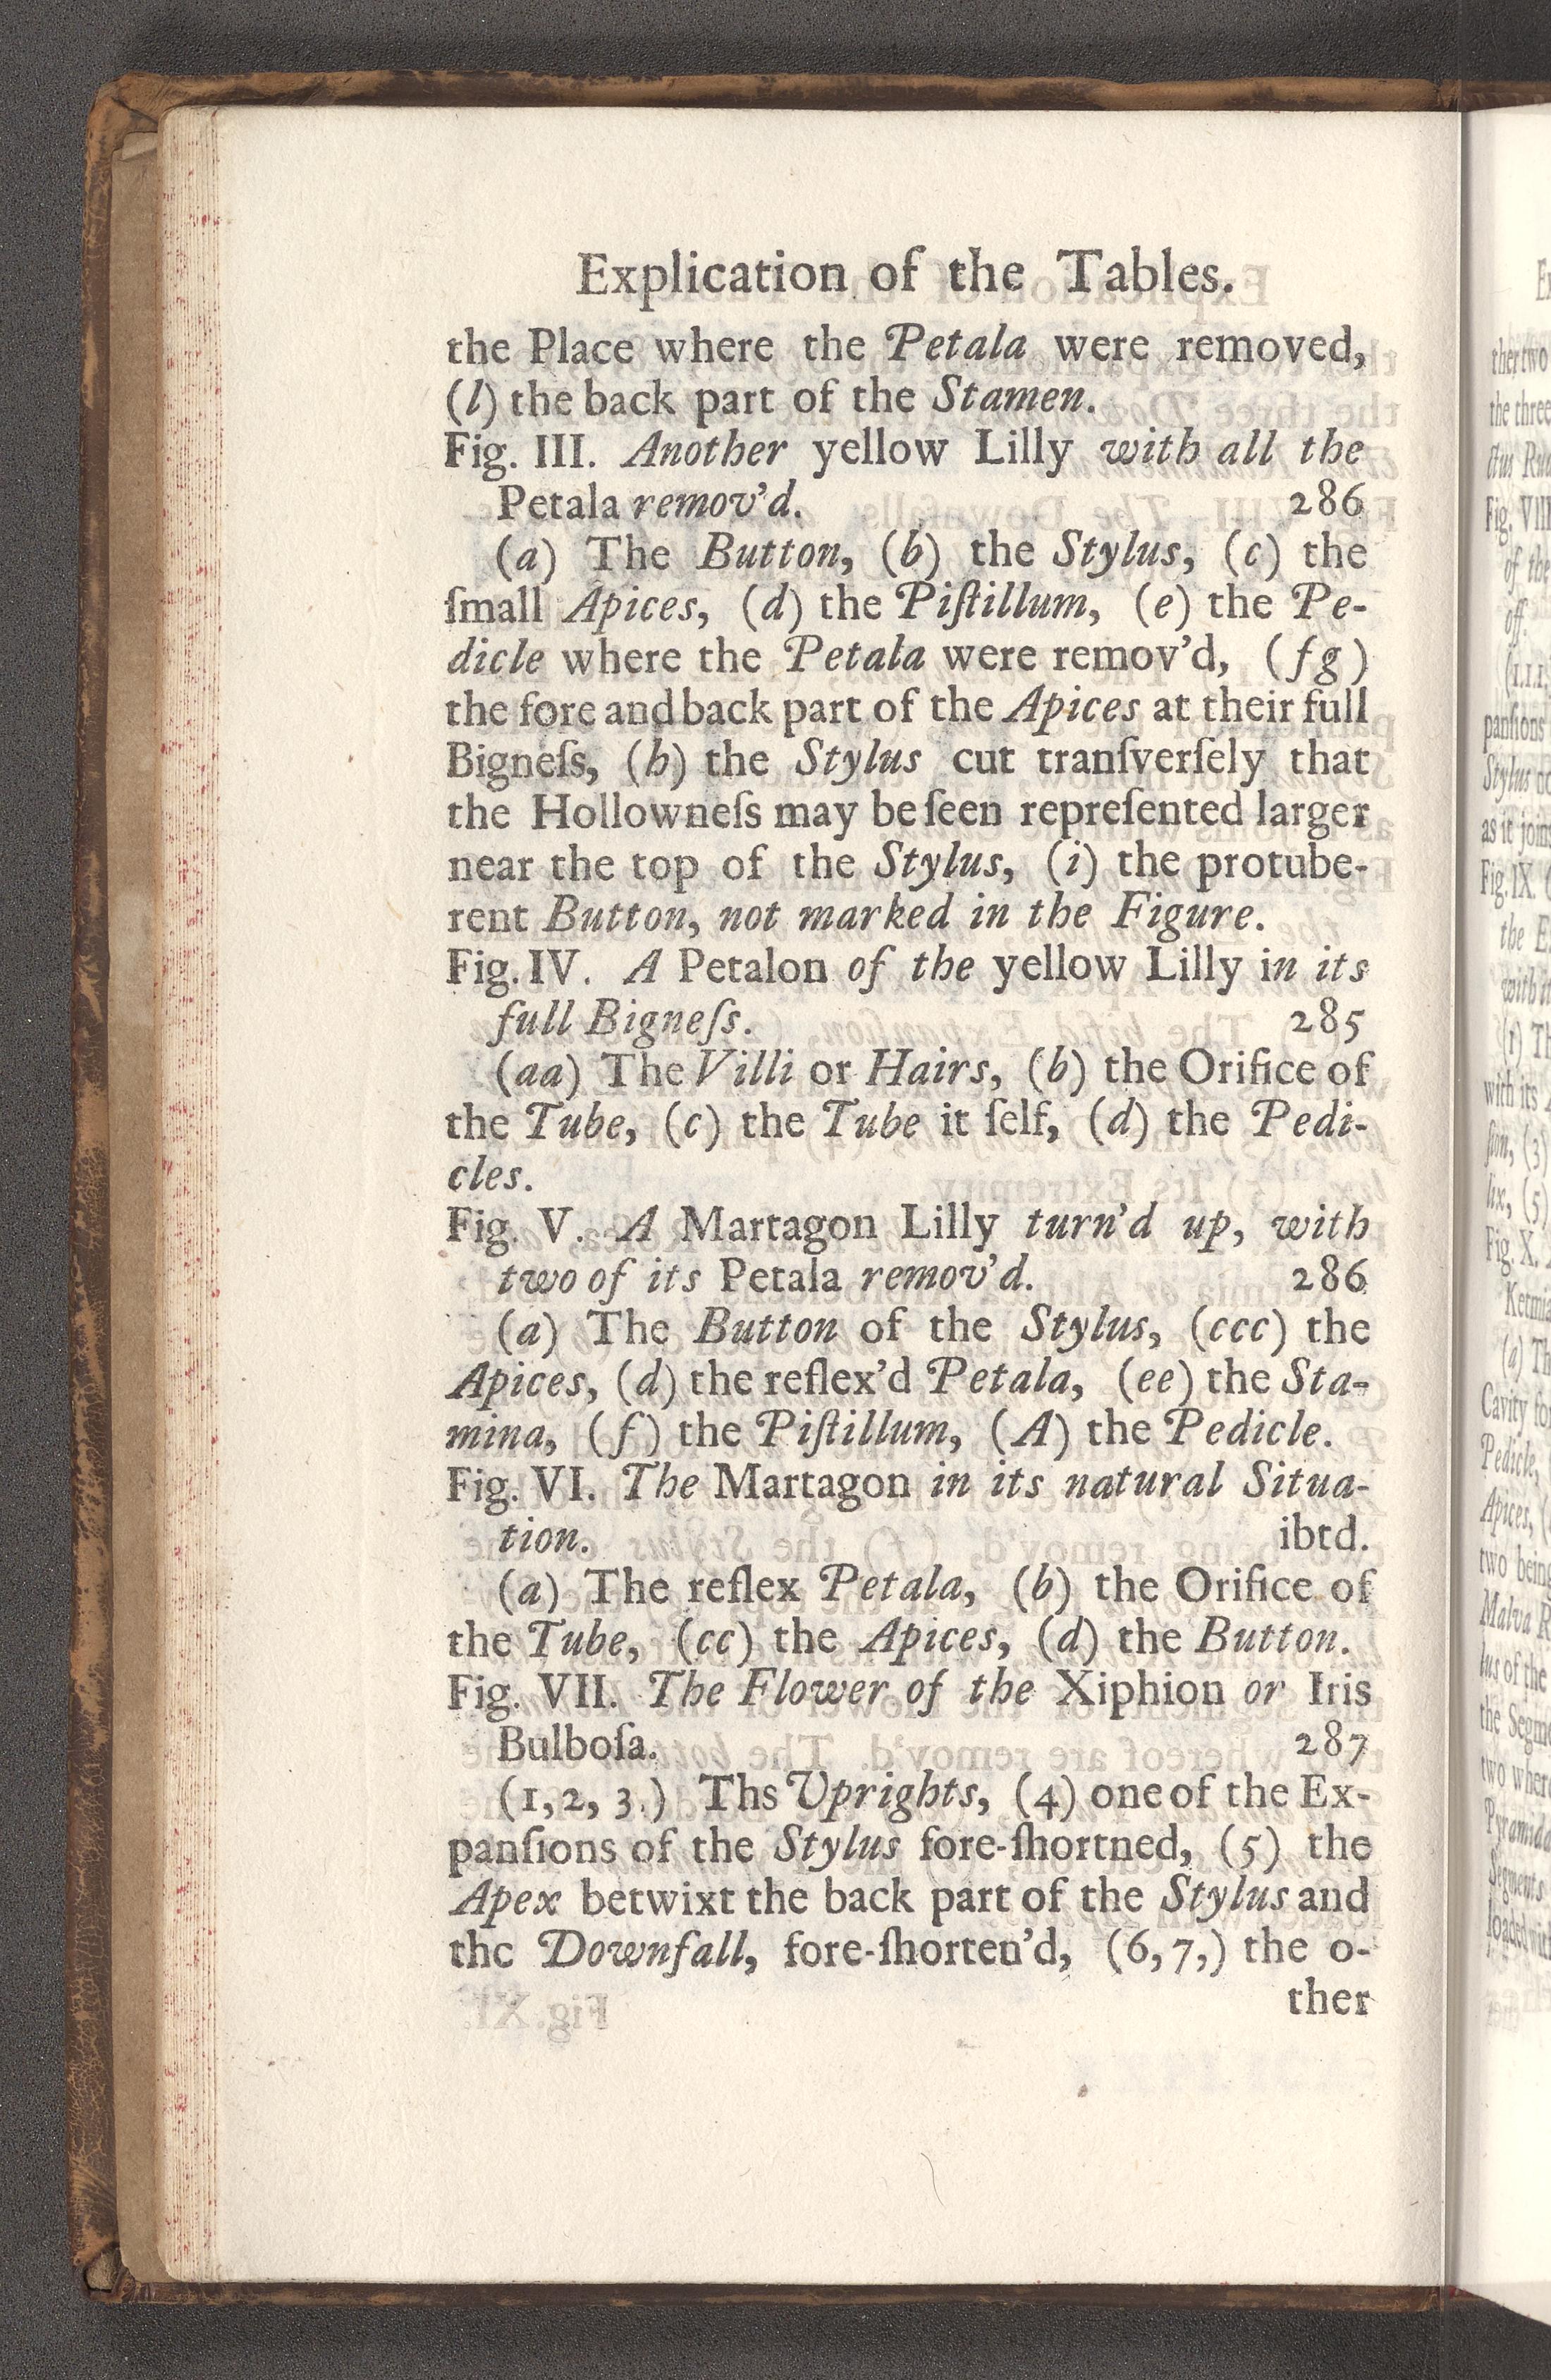 Explication of the Tables.
the Place where the Petala were removed,
(l) the back part of the Stamen.
Fig. III. Another yellow Lilly with all the
Petala remov'd. 286
(a) The Button, (b) the Stylus, (c) the
ſmall Apices, (d) the Piſtillum, (e) the Pe-
dicle where the Petala were remov'd, (fg)
the fore and back part of the Apices at their full
Bigneſs, (h) the Stylus cut tranſverſely that
the Hollowneſs may be ſeen repreſented larger
near the top of the Stylus, (i) the protube-
rent Button, not marked in the Figure.
Fig. IV. A Petalon of the yellow Lilly in its
full Bigneſs. 285
(aa) The Villi or Hairs, (b) the Orifice of
the Tube, (c) the Tube it ſelf, (d) the Pedi-
cles.
Fig. V. A Martagon Lilly turn'd up, with
two of its Petala remov'd. 286
(a) The Button of the Stylus, (ccc) the
Apices, (d) the reflex'd Petala, (ee) the Sta-
mina, (f) the Piſtillum, (A) the Pedicle.
Fig. VI. The Martagon in its natural Situa-
tion. ibtd.
(a) The reflex Petala, (b) the Orifice of
the Tube, (cc) the Apices, (d) the Button.
Fig. VII. The Flower of the Xiphion or Iris
Bulboſa. 287
(1, 2, 3.) Ths Uprights, (4) one of the Ex-
panſions of the Stylus fore-ſhortned, (5) the
Apex betwixt the back part of the Stylus and
thc Downfall, fore-ſhorten'd, (6, 7,) the o-
ther